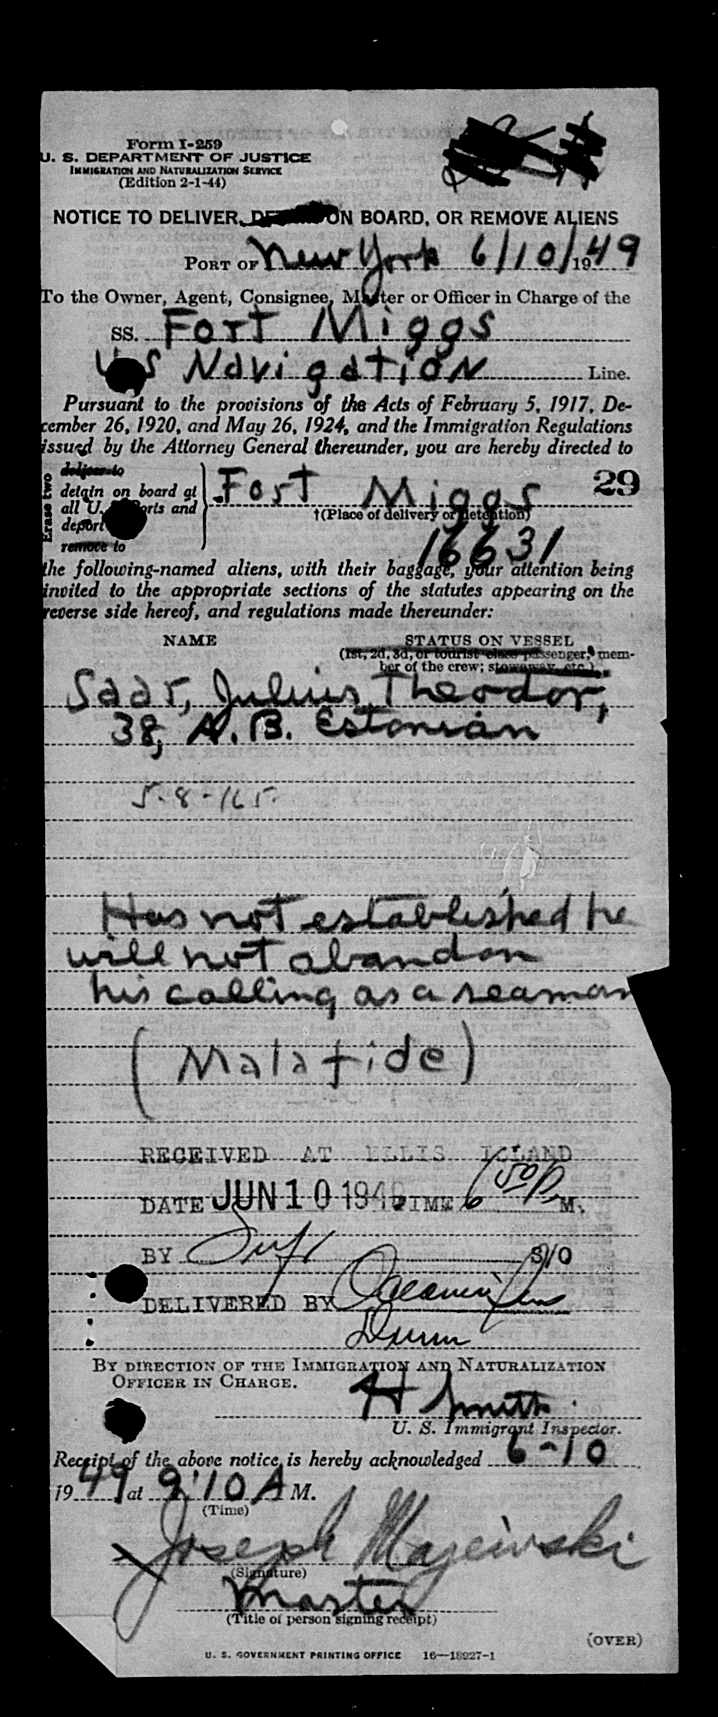 Form I-259
U. S. DEPARTMENT OF JUSTICE
IMMIGRATION AND NATURALIZATION SERVICE
(Edition 2-1-44)
NOTICE TO DELIVER, ON BOARD, OR REMOVE ALIENS
PORT OF New York 6/10/1949
To the Owner, Agent, Consignee, Master or Officer in Charge of the
SS. Fort Miggs
U S Navigation Line.
Pursuant to the provisions of the Acts of February 5, 1917, De-
cember 26, 1920, and May 26, 1924, and the Immigration Regulations
issued by the Attorney General thereunder, you are hereby directed to
Erase two
deliver to
detain on board at
all U. S. ports and
deport
remove to
Fort Miggs 29
†(Place of delivery or detention)
16631
the following-named aliens, with their baggage, your attention being
invited to the appropriate sections of the statutes appearing on the
reverse side hereof, and regulations made thereunder:
NAME STATUS ON VESSEL
(1st, 2d, 3d, or tourist class passenger, mem-
ber of the crew; stowaway, etc.)
Saar, Julius Theodor,
38, A.B. Estonian
5-8-165
Has not established he
will not abandon
his calling as a seaman
(Malafide)
RECEIVED AT ELLIS ISLAND
DATE JUN 10 1949 TIME 6 50 P M.
BY S/O
DELIVERED BY
Dunn
BY DIRECTION OF THE IMMIGRATION AND NATURALIZATION
OFFICER IN CHARGE.
H Smith
U. S. Immigrant Inspector.
Receipt of the above notice is hereby acknowledged 6-10
1949 at 9:10 A M.
(Time)
Joseph Majewski
(Signature)
Master
(Title of person signing receipt)
(OVER)
U. S. GOVERNMENT PRINTING OFFICE 16—18927-1